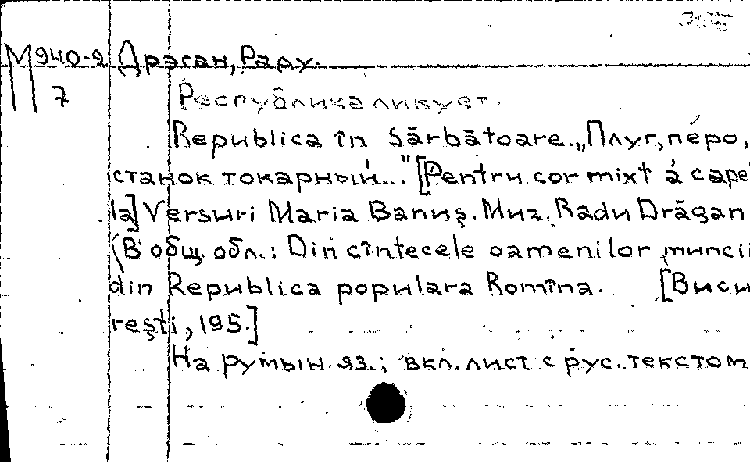 М940-2 Дрэган, Раду.
7 Республика ликует.
Republica în Sărbătoare. „Плуг, перо,
станок токарный..." [Pentru cor mixt a cape
la] Versuri Maria Banuş. Muz. Radu Drăgan
(В общ. обл.: Din cîntecele oamenilor muncii
din Republica populara Romîna. [Bucu
reşti, 195.]
На румын. яз.; вкл. лист с рус. текстом